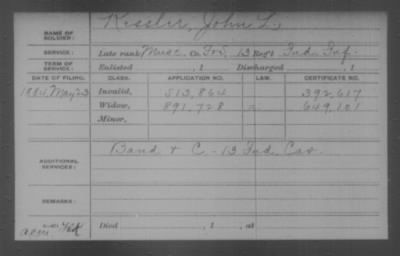 NAME OF SOLDIER: Kessler, John L.
SERVICE: Late rank Musc. Co. 13 Reg't Ind. Inf.
TERM OF SERVICE: Enlisted , 1 Discharged , 1
DATE OF FILING. CLASS. APPLICATION NO. LAW. CERTIFICATE NO.
1884 May 23 Invalid, 513,864 392,617
Widow, 891,728 649,101
Minor,
ADDITIONAL SERVICES: Band & C - 13 Ind. Cav
REMARKS:
Died , 1 , at